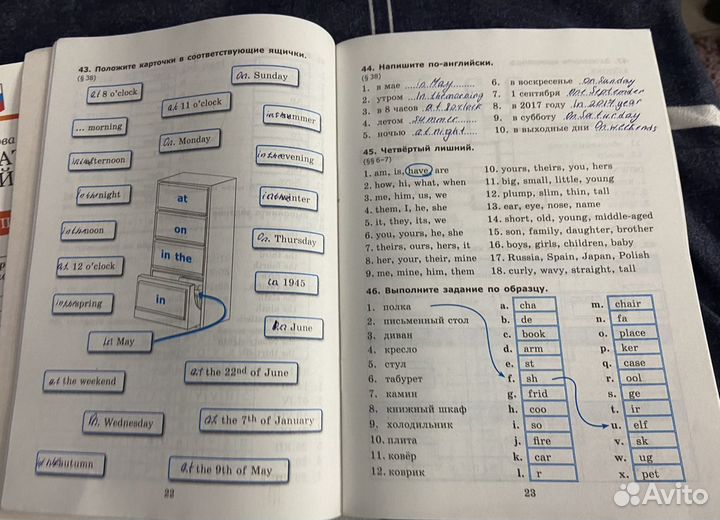 43. Положите карточки в соответствующие ящички.
(§ 38)
at 8 o'clock
On Sunday
at 11 o'clock
... morning
On Monday
in the summer
in the afternoon
in the evening
in the night
in the winter
at
on
in the
in
noon
On Thursday
at 12 o'clock
in 1945
in the spring
June
in May
at the weekend
at the 22nd of June
In Wednesday
at the 7th of January
in the autumn
at the 9th of May ...
22
44. Напишите по-английски.
(§ 38)
1. в мае ....in May....
2. утром ...In the morning
3. в 8 часов at 8 o'clock
4. летом summer......
5. ночью at night.....
6. в воскресенье On Sunday
7. 1 сентября One September
8. в 2017 году In 2017 year
9. в субботу On Saturday
10. в выходные дни On weekends
45. Четвёртый лишний.
(§§ 6–7)
1. am, is, have, are
2. how, hi, what, when
3. me, him, us, we
4. them, I, he, she
5. it, they, its, we
6. you, yours, he, she
7. theirs, ours, hers, it
8. her, your, their, mine
9. me, mine, him, them
10. yours, theirs, you, hers
11. big, small, little, young
12. plump, slim, thin, tall
13. ear, eye, nose, name
14. short, old, young, middle-aged
15. son, family, daughter, brother
16. boys, girls, children, baby
17. Russia, Spain, Japan, Polish
18. curly, wavy, straight, tall
46. Выполните задание по образцу.
1. полка a. cha m. chair
2. письменный стол b. de n. fa
3. диван c. book o. place
4. кресло d. arm p. ker
5. стул e. st q. case
6. табурет f. sh r. ool
7. камин g. frid s. ge
8. книжный шкаф h. coo t. ir
9. холодильник i. so u. elf
10. плита j. fire v. sk
11. ковёр k. car w. ug
12. коврик l. r x. pet
23
Avito